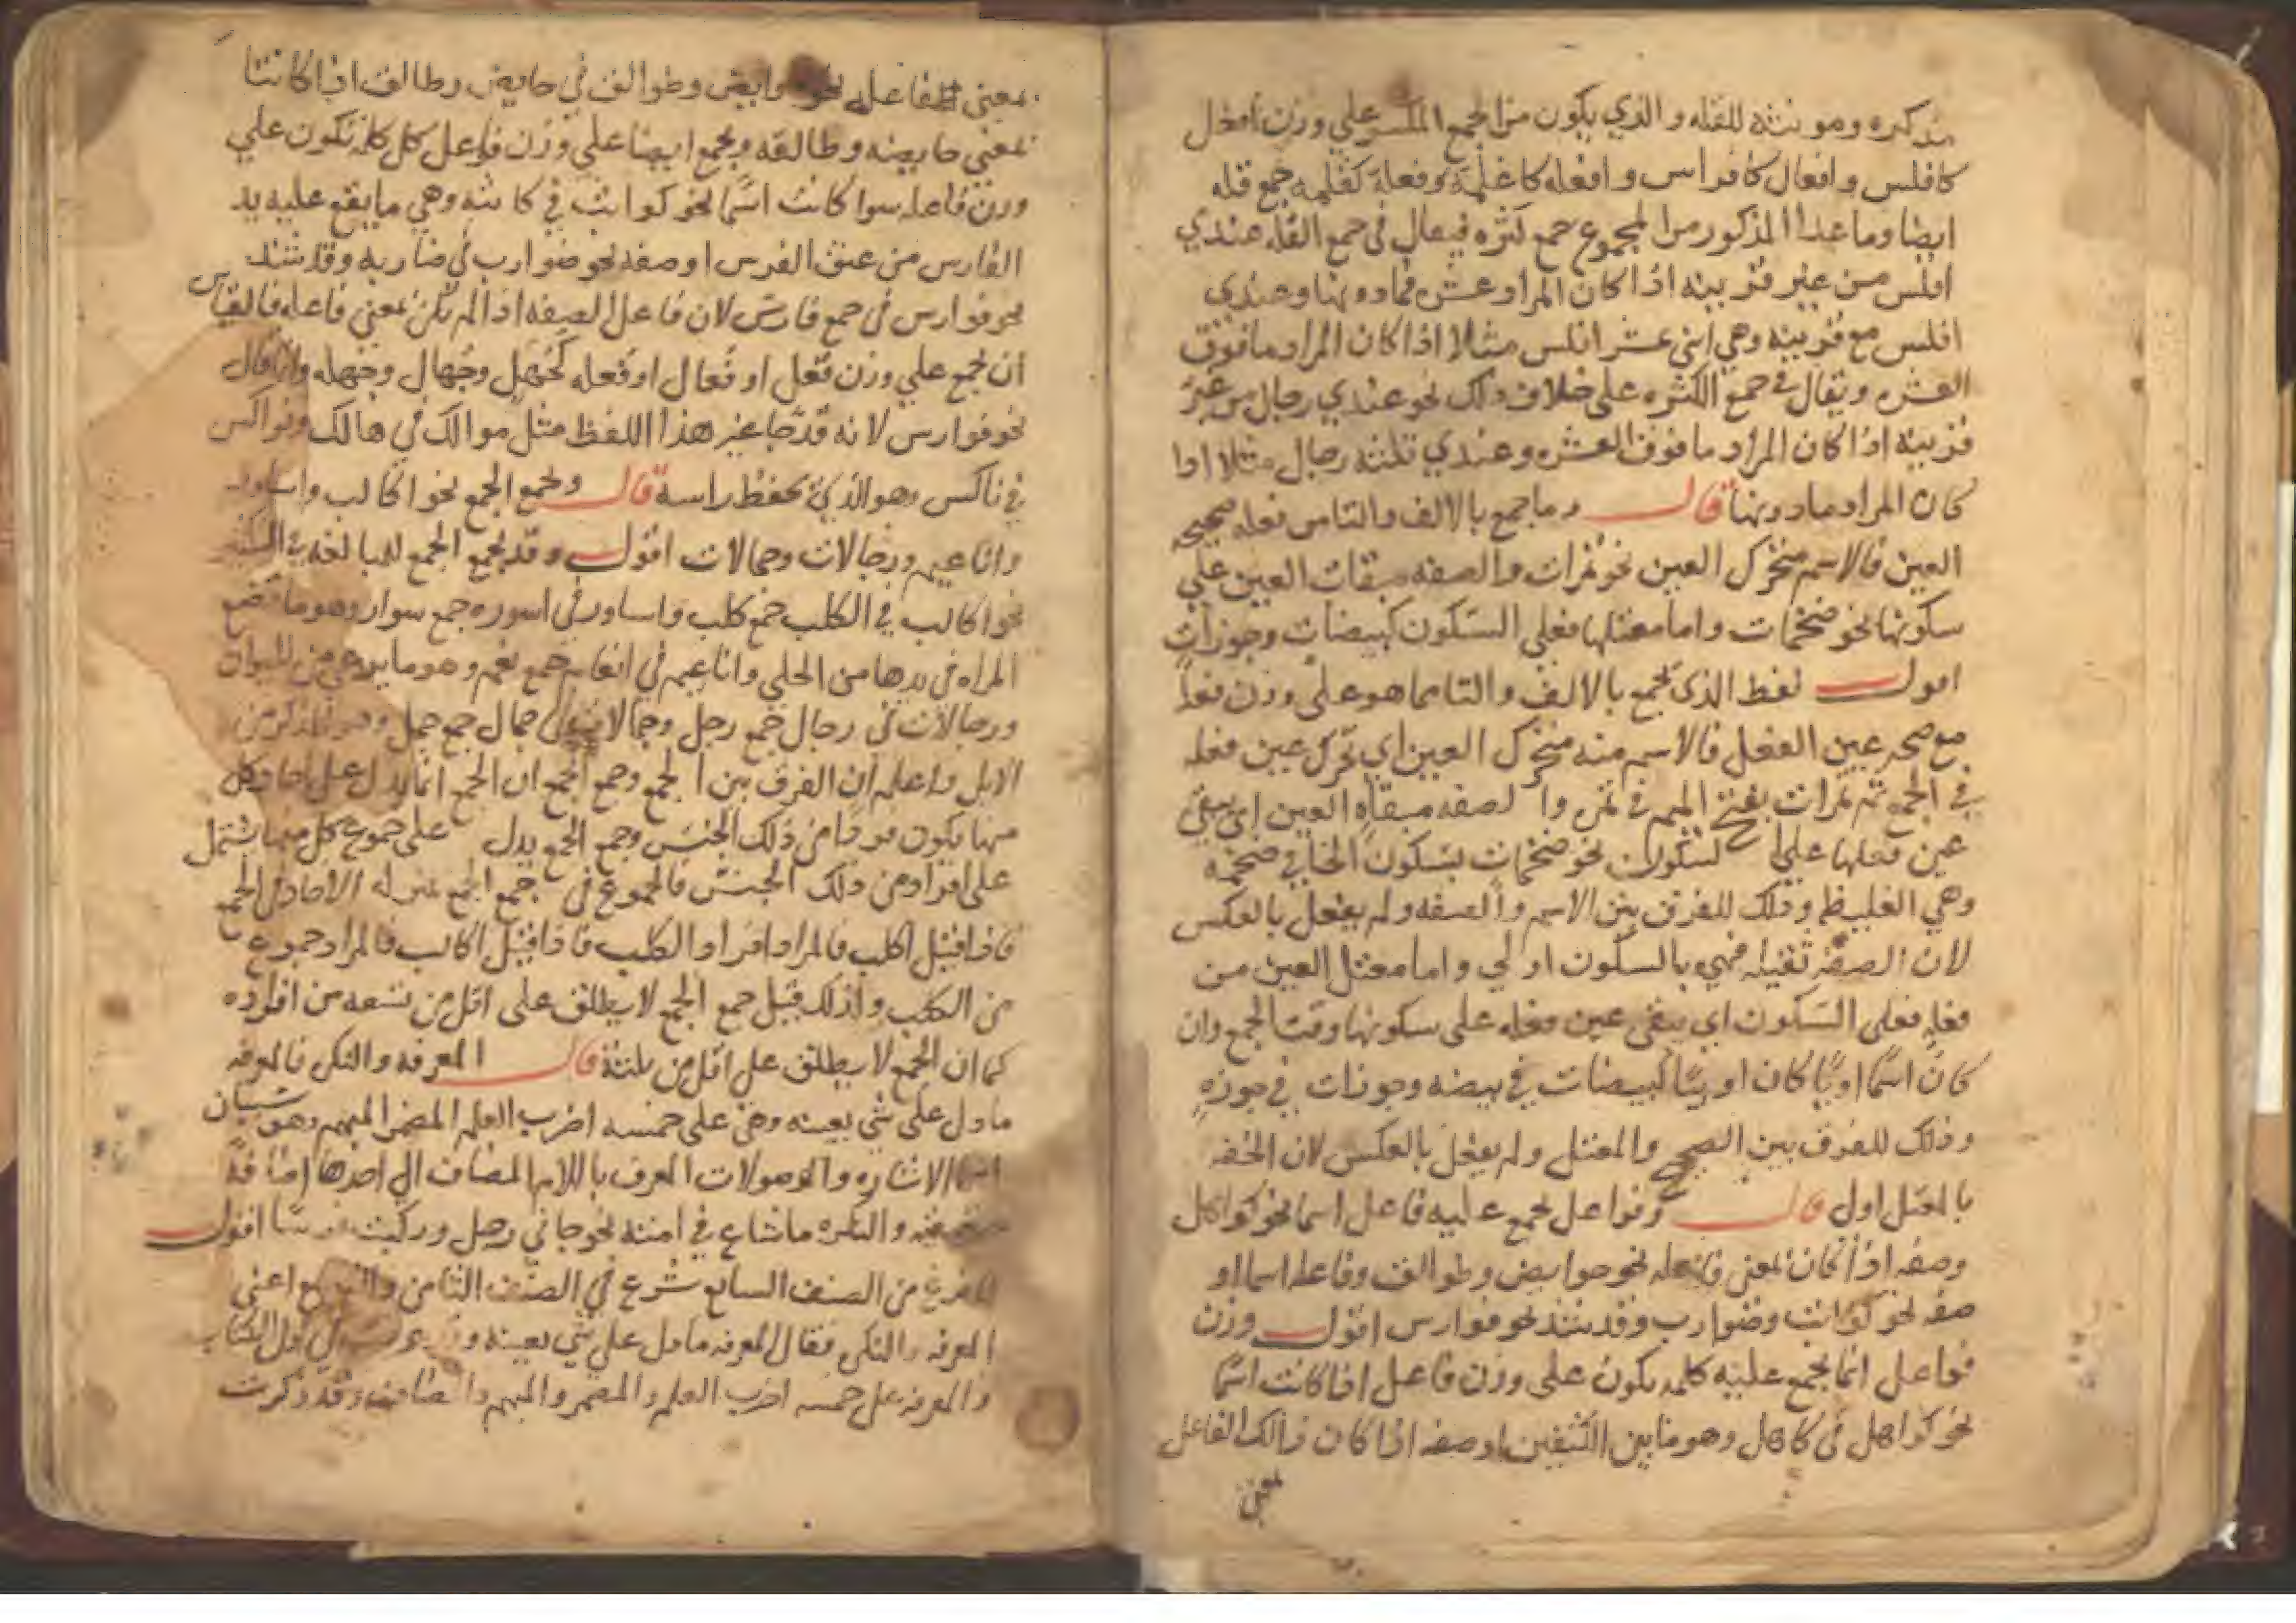 مذكره ومونثه للقله والذي يكون من الجمع المكسر علي وزن افعل
كافلس وافعال كافراس وافعله كاغلمة وفعلة كغلمه جمع قله
ايضا وماعدا المذكور من الجموع جمع كثره فيقال في جمع القله عندي
افلس من غير قرينه اذا كان المراد عشره فمادونها وعندي
افلس مع قرينه وهي اثني عشر افلس مثلا اذا كان المراد مافوق
العشره ويقال في جمع الكثره على خلاف ذلك نحو عندي رجال من غير
قرينه اذا كان المراد مافوق العشره وعندي ثلثه رجال مثلا اذا
كان المراد مادونها قال وماجمع بالالف والتا من فعله صحيحه
العين فالاسم متحرك العين نحو تمرات والصفه مبقات العين علي
سكونها نحو ضخمات واما معتلها فعلي السكون كبيضات وجوزات
اقول لفظ الذي يجمع بالالف والتا مما هو على وزن فعلة
مع صحه عين الفعل فالاسم منه متحرك العين اي تحرك عين فعله
في الجمع تمرات بفتح الميم في تمره والصفه مبقاه العين اي يبقي
عين فعلها علي السكون نحو ضخمات بسكون الخا في ضخمه
وهي الغليظه وذلك للفرق بين الاسم والصفه ولم يفعل بالعكس
لان الصفة ثقيله فهي بالسكون اولي واما معتل العين من
فعله فعلى السكون اي يبقى عين فعله على سكونها وقت الجمع وان
كان اسما كبيضات في بيضه وجوزات في جوزه
وذلك للفرق بين الصحيح والمعتل ولم يفعل بالعكس لان الخفه
بالمعتل اولي قال وفواعل يجمع عليه فاعل اسما نحو كواهل
وصفه اذا كان بمعنى فاعله نحو حوايض وطوالق وفاعله اسما او
صفه نحو كواثب وضوارب وقد شذ نحو فوارس اقول وزن
فواعل انما يجمع عليه كلمه يكون على وزن فاعل اذا كانت اسما
نحو كواهل في كاهل وهو مابين الكتفين او صفه اذا كان ذالك الفاعل
بمعني
بمعني الفاعله نحو حوايض وطوالق في حايض وطالق اذا كانتا
بمعني حايضه وطالقه ويجمع ايضا علي وزن فواعل كل كلمة تكون علي
وزن فاعله سوا كانت اسما نحو كواثب في كاثبه وهي مايقع عليه يد
الفارس من عنق الفرس او صفه نحو ضوارب في ضاربه وقد شذ
نحو فوارس في جمع فارس لان فاعل الصفه اذا لم تكن بمعني فاعله فالقياس
ان يجمع علي وزن فعل او فعال او فعله كجهل وجهال وجهله وانما قال
نحو فوارس لانه قد جا غير هذا اللفظ مثل هوالك في هالك ونواكس
في ناكس وهو الذي يخفظ راسه قال ويجمع الجمع نحو اكالب واساور
واناعيم ورجالات وجمالات اقول وقد يجمع الجمع للمبالغه في
نحو اكالب في اكلب جمع كلب واساور في اسوره جمع سوار وهو ما تضع
المراه في يدها من الحلي واناعيم في انعام جمع نعم وهو مايرعي من الحيوان
ورجالات في رجال جمع رجل وجمالات في جمال جمع جمل وهو الذكر من
الابل واعلم ان الفرق بين الجمع وجمع الجمع ان الجمع انما يدل على احاد كل
منها يكون فردا من ذلك الجنس وجمع الجمع يدل على جموع كل منها يشتمل
على افراد من ذلك الجنس فالجموع في جمع الجمع بمنزله الاحاد في الجمع
فاذا قيل اكلب فالمراد افراد الكلب فاذا قيل اكالب فالمراد جموع
من الكلب ولذلك قيل جمع الجمع لا يطلق على اقل من تسعه من افراده
كما ان الجمع لا يطلق على اقل من ثلثة قال المعرفه والنكره فالمعرفه
ما دل علي شي بعينه وهي علي خمسه اضرب العلم المضمر المبهم وهو شيان
اسما الاشاره والموصولات المعرف باللام المضاف الي احدها اضافة
حقيقيه والنكره ماشاع في امته نحو جاني رجل وركبت فرسا اقول
لما فرغ من الصنف السابع شرع في الصنف الثامن والتاسع اعني
المعرفه والنكره فقال المعرفه مادل علي شي بعينه في اول الكتاب
والمعرفه على خمسه اضرب العلم والمضمر والمبهم والمضاف وقد ذكرت